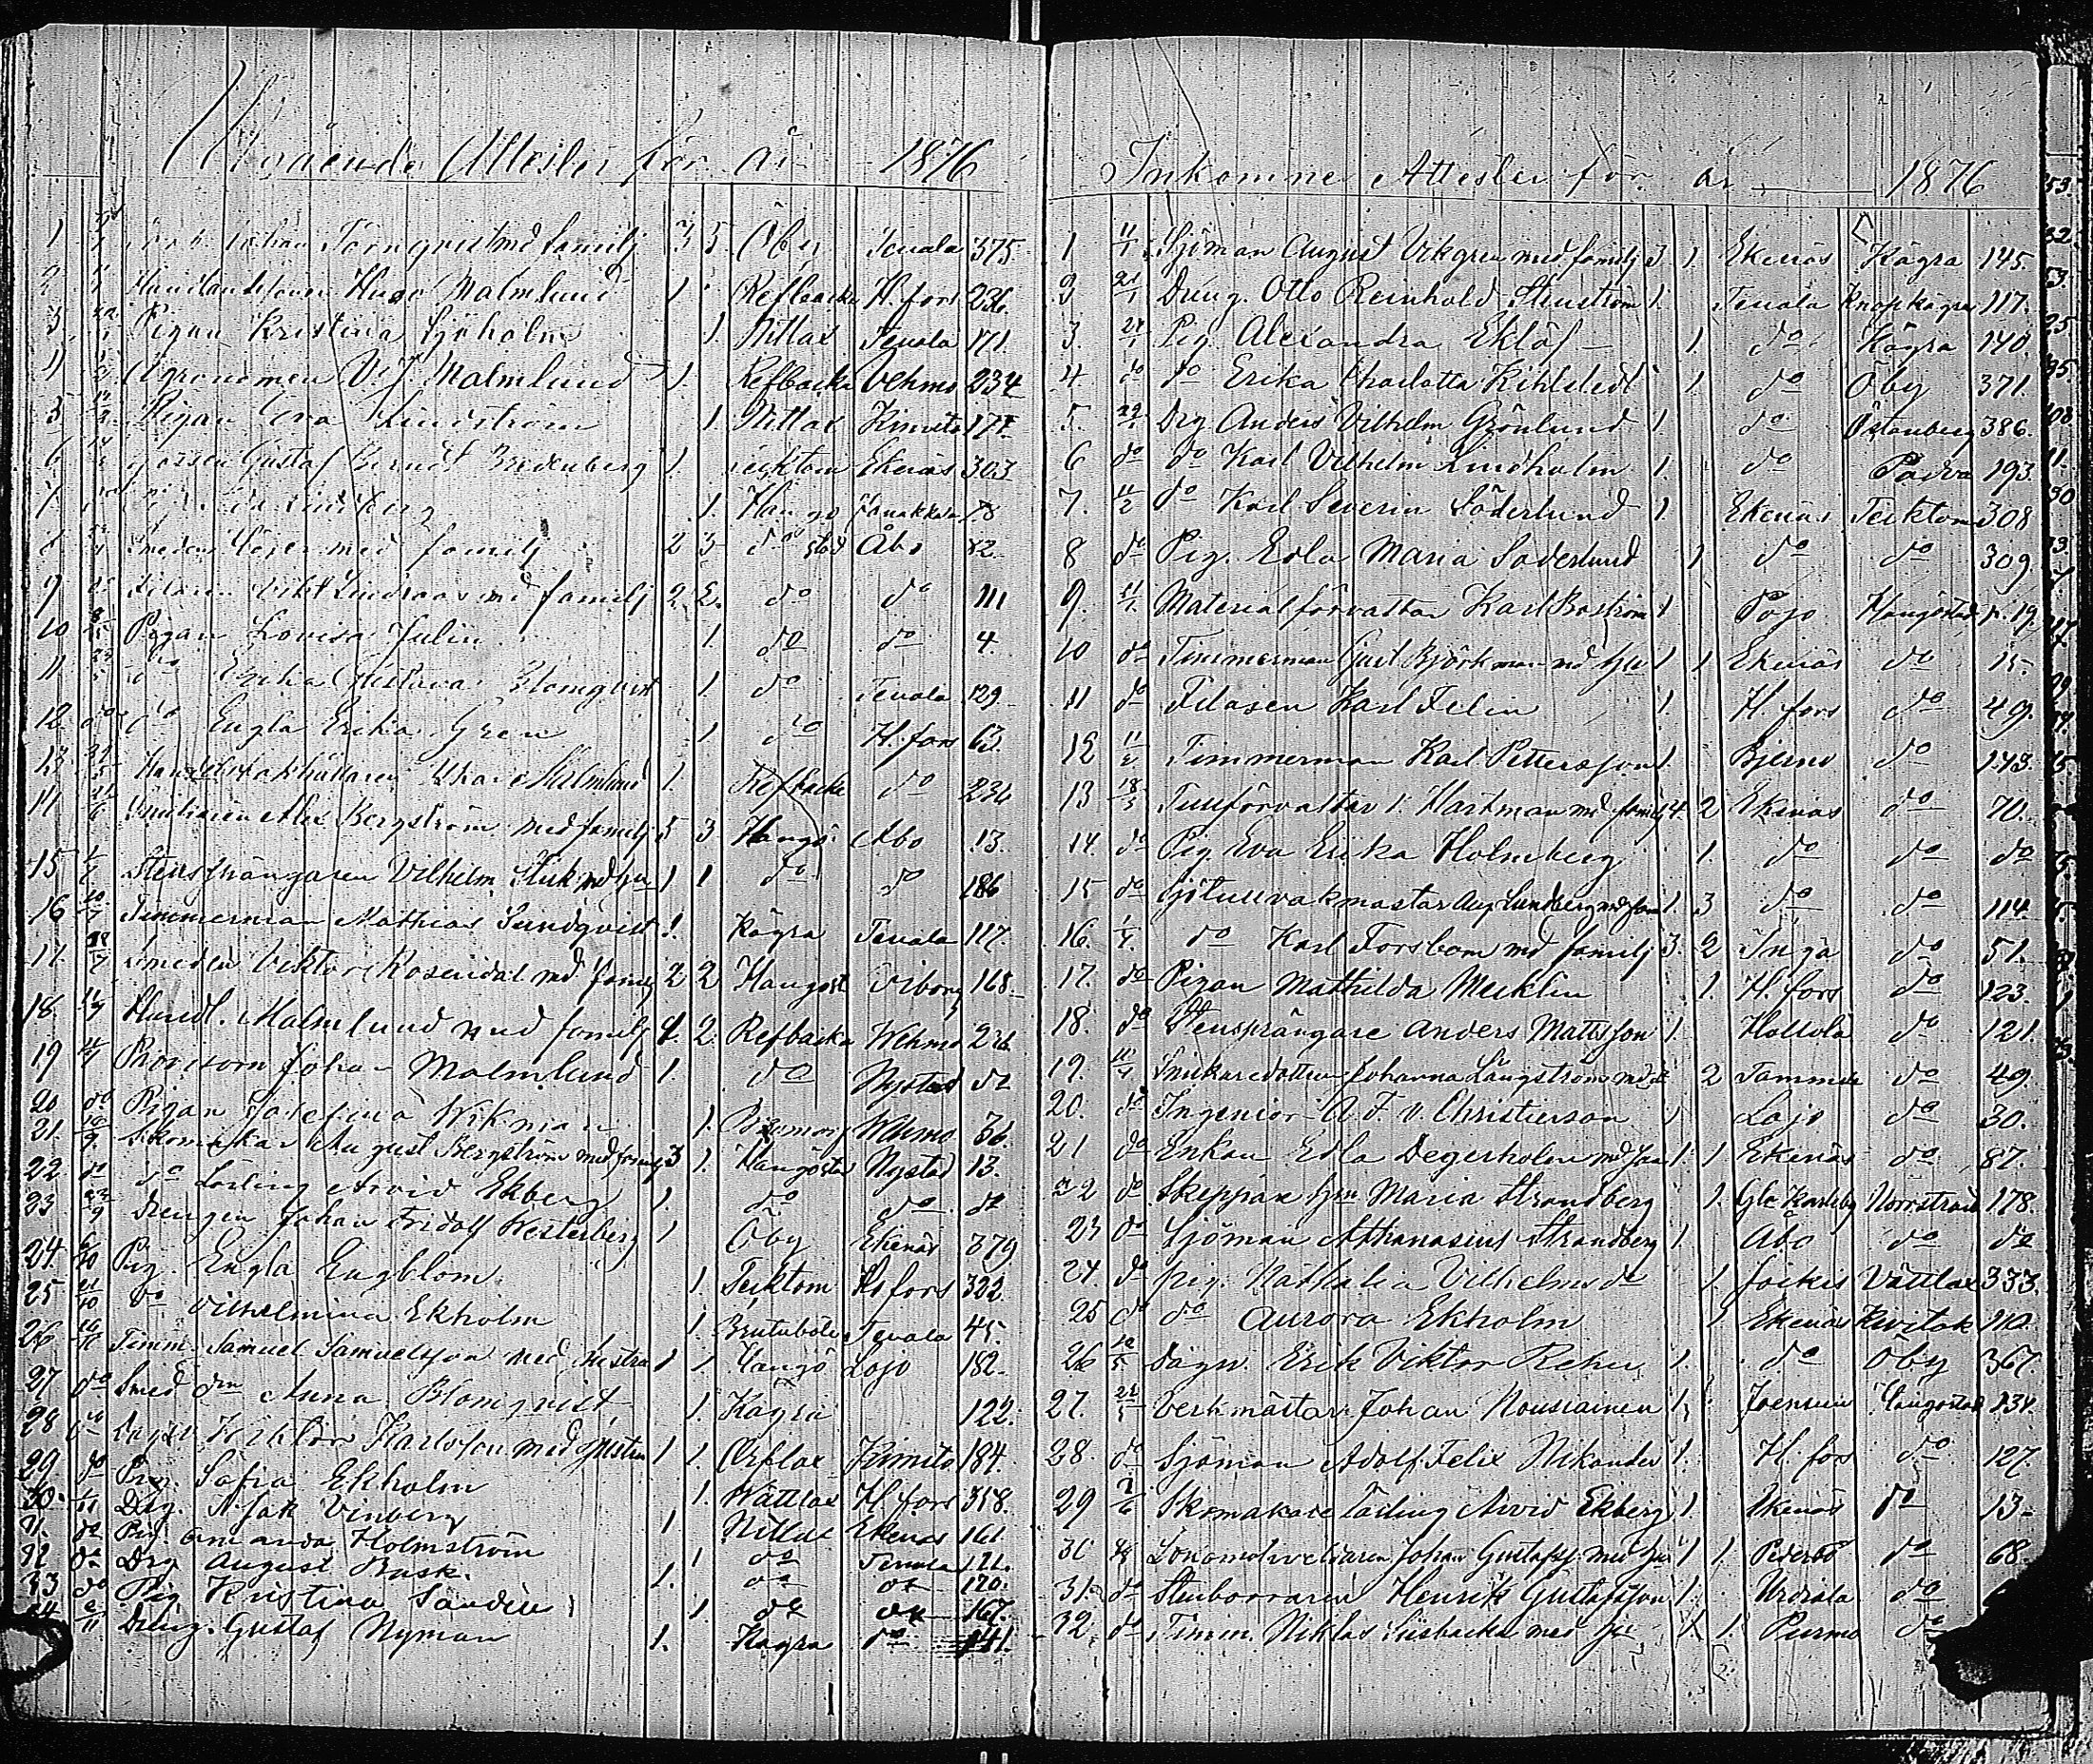 Utgående Attester för år 1876
1 Johan Törnqvist md familj 3 5 Öby Tenala 375
2 Hugo Malmlund 1 Refbacka H.fors 236.
3 Pigan Kristina Sjöholm 1. Nitlax Tenala 171.
4 Agronomen V. J. Malmlund 1. Refbacka Vehmo 234
5 Pigan Eva Lindström 1. Nitlax Kimito 177.
6 Gossen Gustaf Berndt Bredenberg 1 Tecktom Ekenäs 303
7 1. Hangö Janakkala 78
8 Smeden med familj 2 3 do stad Åbo 82.
9 med familj 2. 2. do do 111
10 Pigan Lovisa Julin 1. do do 4
11 do Erika Kristina Blomqvist 1 do Tenala 129
12 do do Engla Erika Gren 1 do H.fors 63.
13 Malmlund 1. Refbacka do 236
14 Alex Bergström med familj 5 3 Hangö Åbo 13.
15 Stensprängaren Vilhelm md hu 1 1 do do 186
16 Timmerman Mathias Sundqvist 1. Kågra Tenala 117.
17 Smeden Viktor Rosendal md familj 2 2 Hangöst Viborg 168.
18. Handl. Malmlund med familj 4. 2. Refbacka Wehmo 236
19 Provisorn Johan Malmlund 1. do Nystad do
20 do Pigan Josefina Wikman 1. Wehmo 36.
21. Skomakar August Bergström med familj 3 1. Hangöstad Nystad 13.
22 do do Lärling Arvid Ekberg 1. do do do
23 Drengen Johan Fridolf Westerberg 1 Öby Ekenäs 379
24. Pig. Engla Engblom 1. Tecktom H.fors 322.
25 do Vilhelmina Ekholm 1. Tenala 45.
26 Timm. Samuel Samuelsson med hustru 1 1 Hangö Lojo 182.
27 do Smed Anna Blomqvist 1. Kågra 122.
28 Viktor Karlsson med hustru 1 1. Kimito 184.
29 do Pig. Sofia Ekholm 1. Wättlax H.fors 358.
30. Drg. Isak Vinberg 1 Nitlax Ekenäs 161
31. do Pig. Amanda Holmström 1 do Tenala 121.
32 do Drg August Busk. 1. do do 170.
33 do Pig Kristina Sandell 1 do do 167.
34 Dräng. Gustaf Nyman 1. Kågra do 141.
Inkomne Attester för år 1876
1 11/1 Sjöman August Vikgren med familj 3 1. Ekenäs Kågra 145.
2 21/1 Dräng. Otto Reinhold Stenström 1. Tenala Knopkägra 117.
3. Pig. Alexandra Eklöf 1. do Kågra 140.
4. do do Erika Charlotta Kihlstedt 1 do Öby 371.
5. Drg Anders Vilhelm Grönlund 1. do Östanberg 386.
6 do do Karl Vilhelm Lindholm 1. do Padva 193.
7. 11/2 do Karl Severin Söderlund 1. Ekenäs Tecktom 308
8 do Pig. Edla Maria Söderlund 1 do do 309.
9. Materialförvaltar Karl Boström 1 Pojo Hangöstad p. 19.
10 do Timmerman Gust Björkman md hu 1 1 Ekenäs do 15
11 do Filaren Karl Felin 1. H.fors do 49.
12 Timmerman Karl Petterson 1. Bjerno do 143.
13 18/3 Tullförvaltar Hartman md familj 4. 2 Ekenäs do 70.
14. do Pig. Eva Erika Holmberg 1. do do do
15 do Sjötullvakmästar Aug Lundberg md fam 1. 3 do do 114
16. 1/4 do Karl Forsbom md familj 3. 2 Ingå do 51.
17. do Pigan Mathilda Mecklin 1. H.fors do 123.
18. do Stensprängare Anders Mattsson 1. Hollola do 121.
19. Snickaredottern Johanna Långström md dr 2 Tammela do 49.
20. do Ingeniör A. F. v. Christierson 1 Lojo do 30.
21 do Enkan Edla Degerholm md fam 1. 1 Ekenäs do 87.
22 do Skeppare hm Maria Strandberg 1. Gla Karleby Norrstrand 178.
23 do Sjöman Athanasius Strandberg 1. Åbo do do
24. do pig. Nathalia Vilhelmsdr 1. Jockis Vättlax 333.
25 do do Aurora Ekholm 1 Ekenäs 110.
26 12/5 Dagsv. Erik Viktor Rehn 1. do Öby 367
27. 22/5 Verkmästar Johan Nousiainen 1 Joensuu Hangöstad 134
28. do Sjöman Adolf Felix Nikander 1. H.fors do 127
29 2/6 Skomakare Lärling Arvid Ekberg 1. Ekenäs do 13
30 Johan Gustafss med hu 1 1. Pedersö do 68.
31. do Stenborraren Henrik Gustafsson 1. Urdiala do
32. do Timm. Niklas Siisbacka med hu 1 1. Purmo do